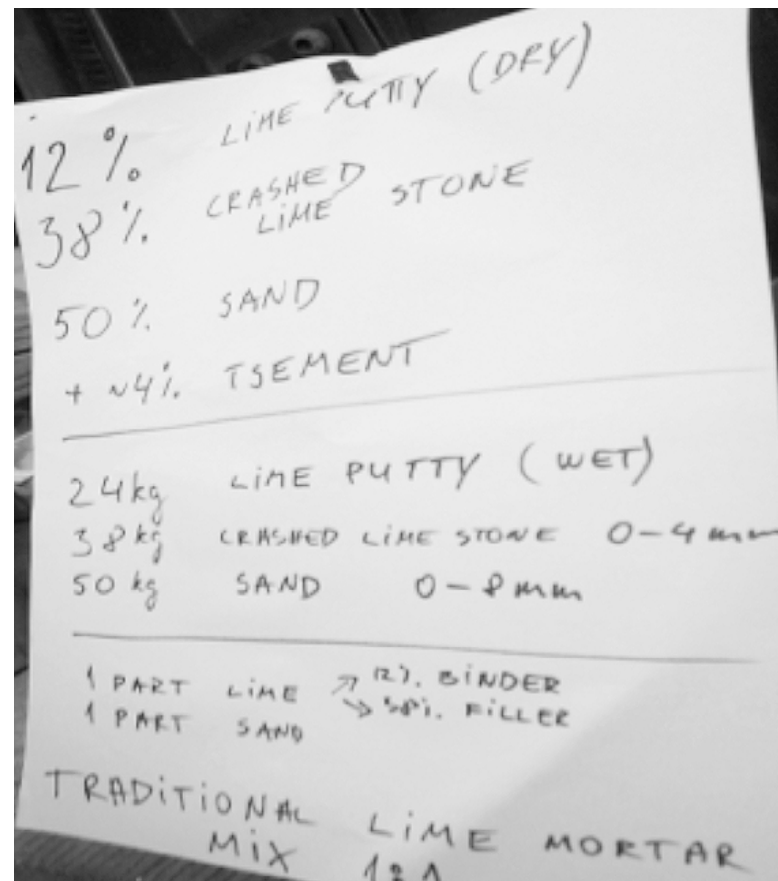 12 % LIME PUTTY (DRY)
38 % CRASHED LIME STONE
50 % SAND
+ ~4% TSEMENT
24kg LIME PUTTY (WET)
38kg CRASHED LIME STONE 0-4 mm
50 kg SAND 0-8 mm
1 PART LIME ↗ 12%. BINDER
↘ 38%. FILLER
1 PART SAND
TRADITIONAL LIME MORTAR
MIX 1:1